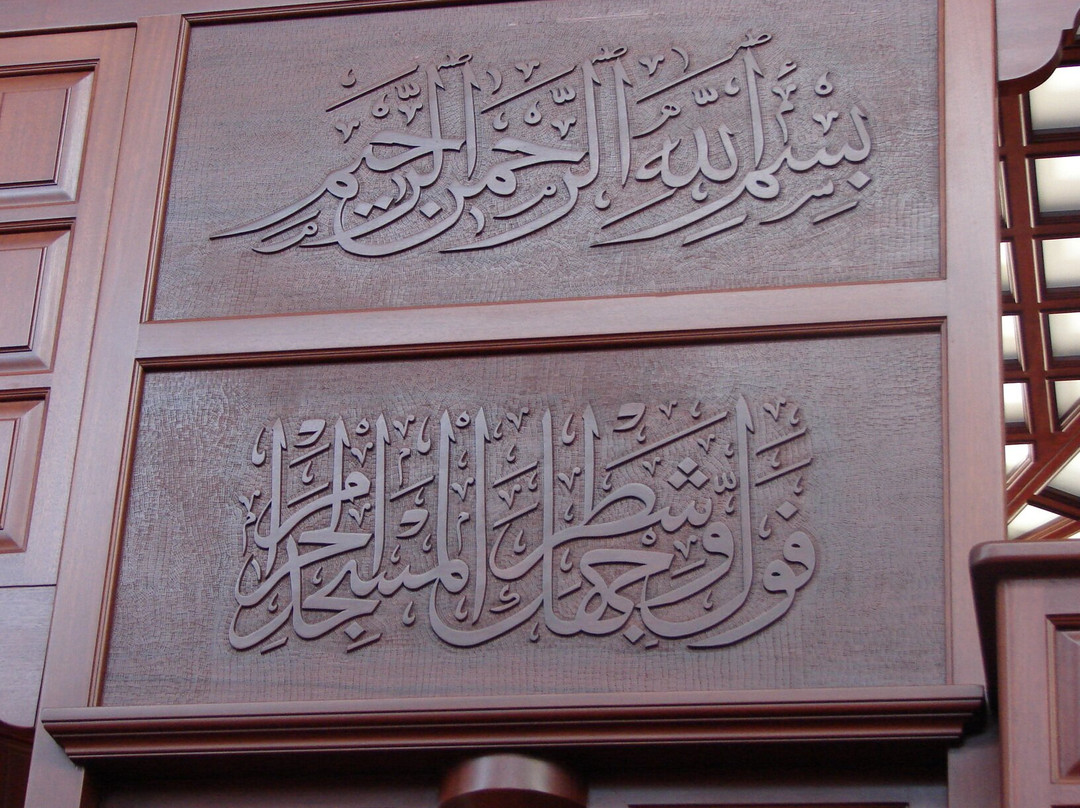 بِسْمِ اللَّهِ الرَّحْمَٰنِ الرَّحِيمِ
فَوَلِّ وَجْهَكَ شَطْرَ الْمَسْجِدِ الْحَرَامِ